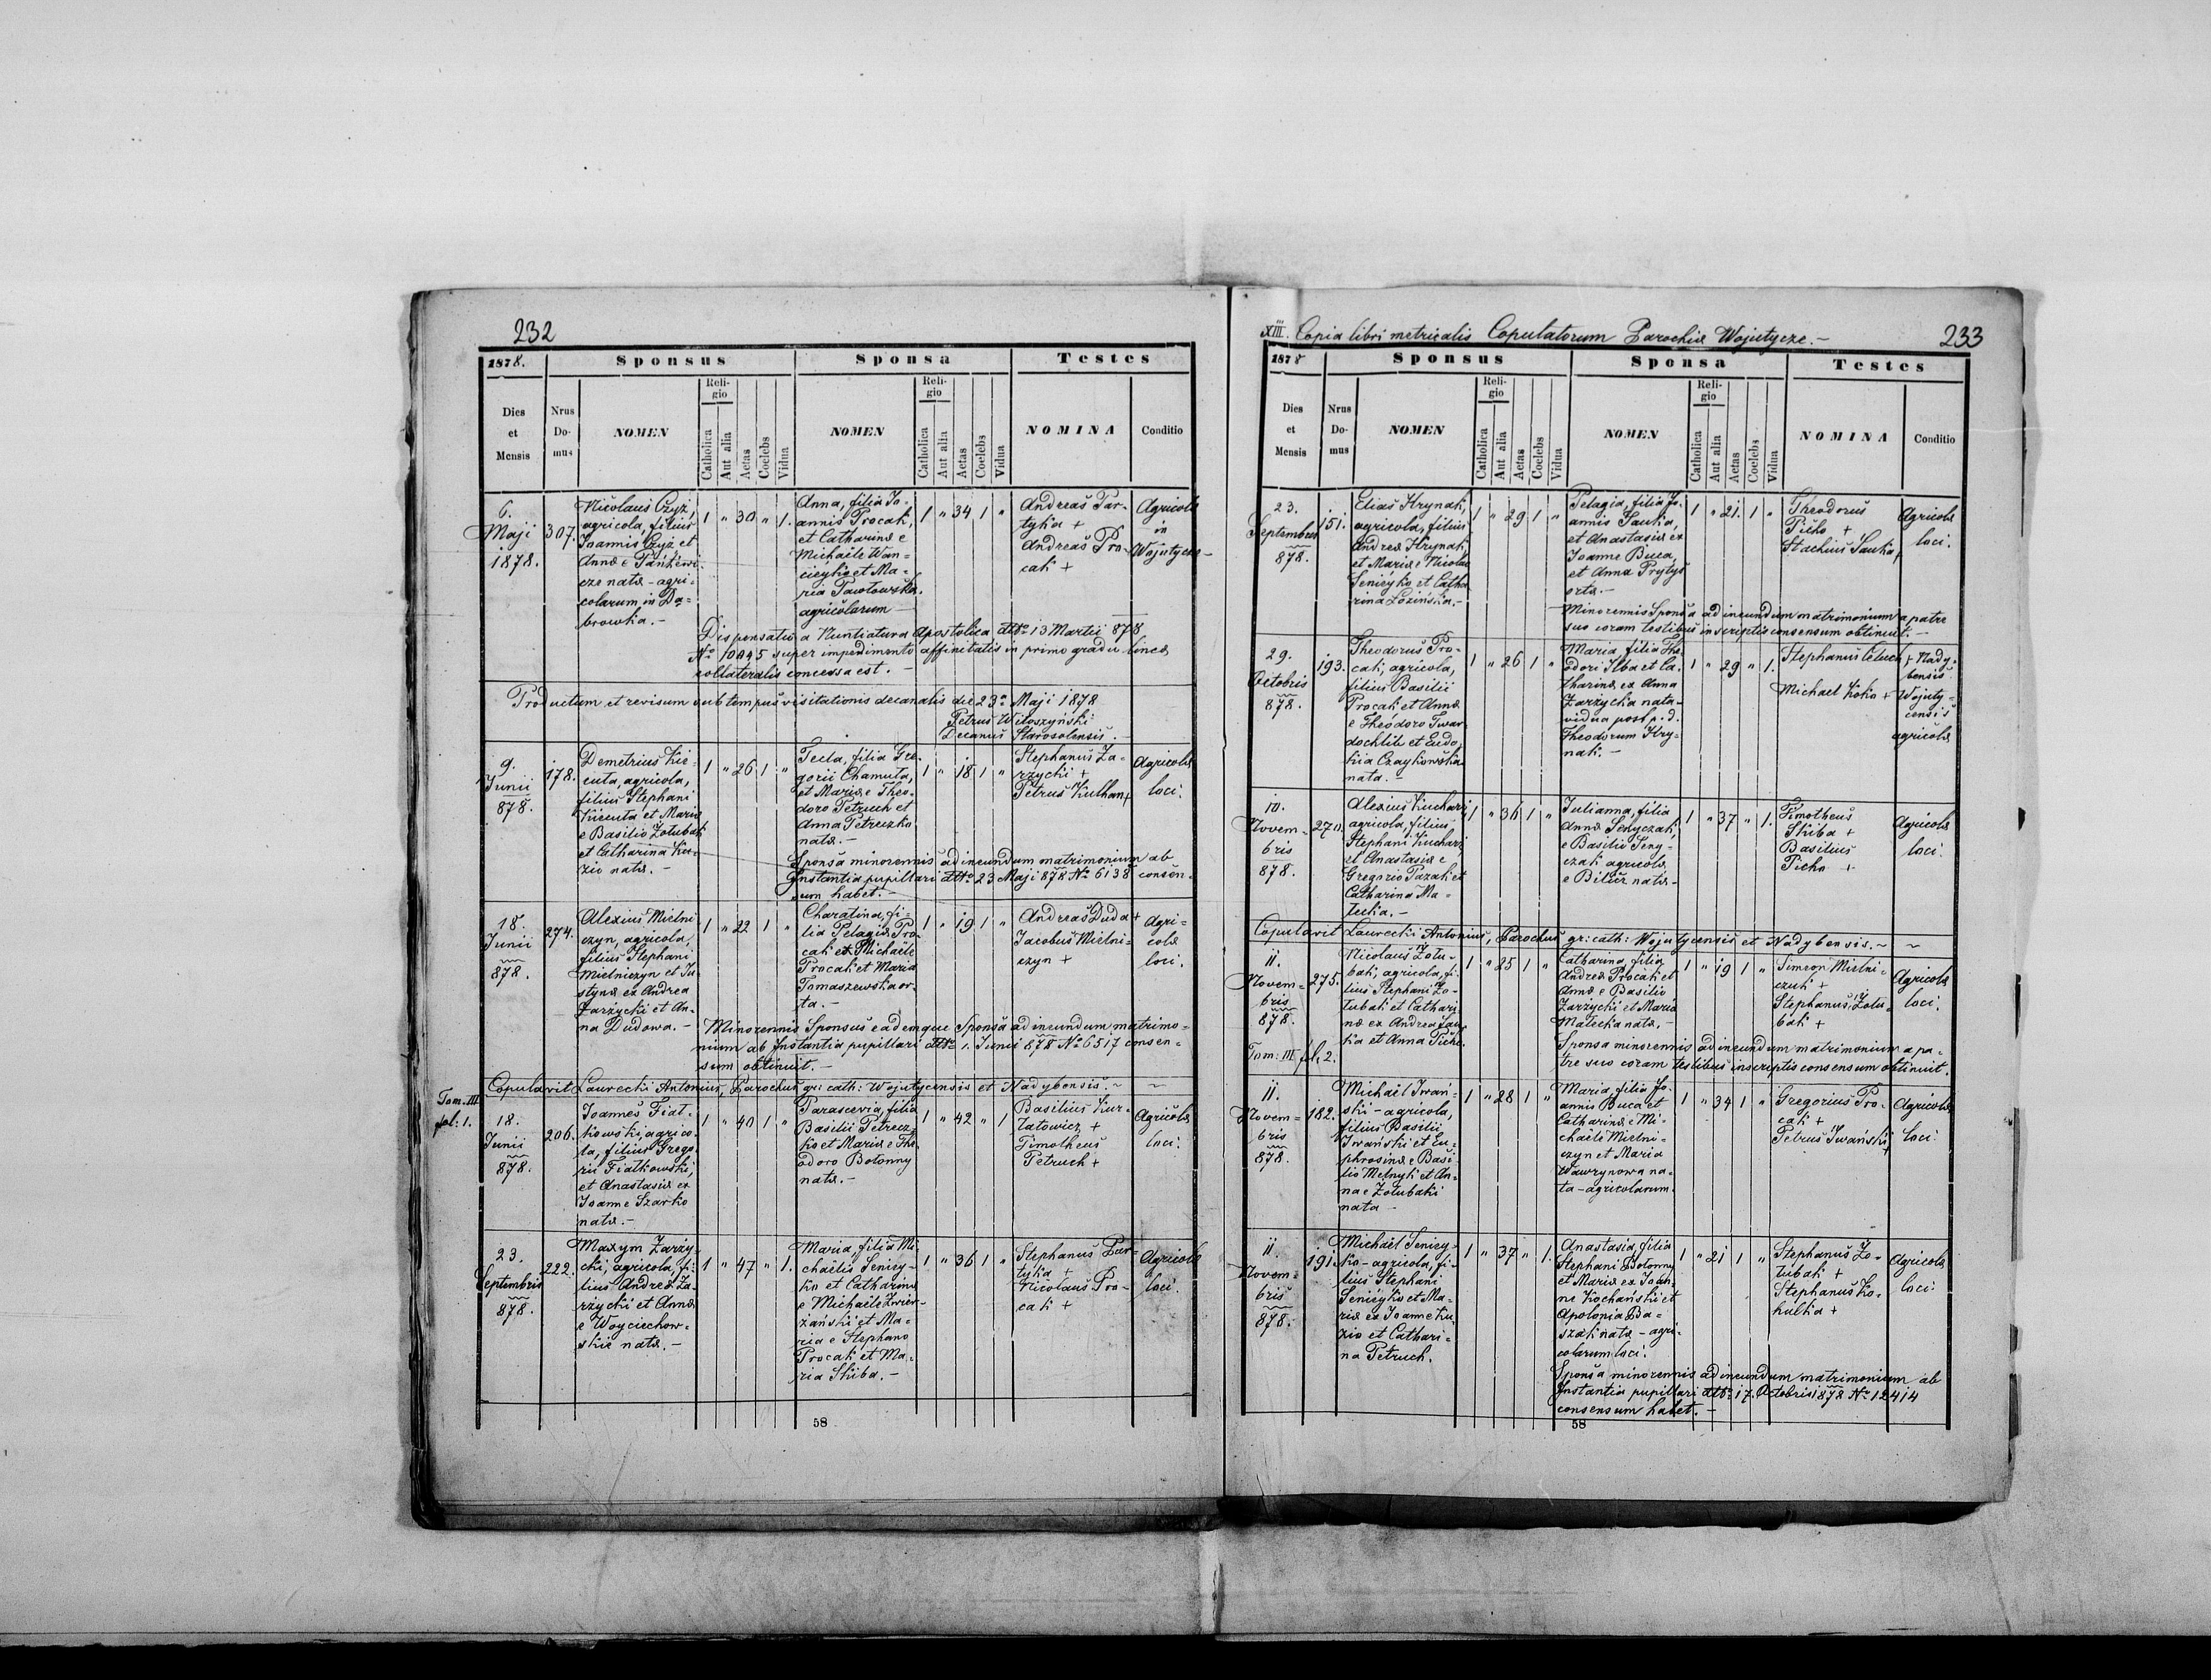 232
1878.
Sponsus
Sponsa
Testes
Dies et Mensis
Nrus Domus
NOMEN
Religio
Catholica
Aut alia
Aetas
Coelebs
Vidua
NOMEN
Religio
Catholica
Aut alia
Aetas
Coelebs
Vidua
NOMINA
Conditio
6.
Maji
1878.
307.
Nicolaus Czyż,
agricola, filius
Joannis Czyż et
Annæ e Pańkewi-
cze natæ - agri-
colarum in Dą-
browka. -
1 " 30 " 1.
Anna, filia Jo-
annis Procak,
et Catharinæ e
Michaële Wan-
cicyko et Ma-
ria Pawłowska
agricolarum -
1 " 34 1 "
Andreas Par-
tyka +
Andreas Pro-
cak +
Agricolæ
in
Wojutycze -
Dispensatio a Nuntiatura Apostolica ddto 13 Martii 878
No 10045 super impedimento affinitatis in primo gradu lineæ
collateralis concessa est. -
Productum et revisum sub tempus visitationis decanalis die 23a Maji 1878
Petrus Witoszyński
Decanus Starosolensis. -
9.
Junii
878.
178.
Demetrius Kic-
cuta, agricola,
filius Stephani
Kiccuta et Mariæ
e Basilio Żołubak
et Catharina Ku-
zio natæ. -
1 " 26 1 "
Tecla, filia Gre-
gorii Chamuta,
et Mariæ e Theo-
doro Petruch et
Anna Petreczko
natæ. -
1 " 18 1 "
Stephanus Za-
rzycki +
Petrus Kulhan +
Agricolæ
loci.
Sponsa minorennis ad ineundum matrimonium ab
Instantia pupillari ddto 23 Maji 878 No 6138 consen-
sum habet. -
18.
Junii
878.
274.
Alexius Mielni
czyn, agricola,
filius Stephani
Mielniczyn et Ju-
stynæ ex Andrea
Zarzycki et An-
na Dudowa. -
1 " 22 1 "
Charatina, fi-
lia Pelagiæ Pro-
cak ex Michaële
Procak et Maria
Tomaszewska or-
ta. -
1 " 19 1 "
Andreas Duda +
Jacobus Mielni-
czyn +
Agri-
colæ
loci.
Minorennis Sponsus eademque Sponsa ad ineundum matrimo-
nium ab Instantia pupillari ddto 1. Junii 878 No 6517 consen-
sum obtinuit. -
Copulavit Laurecki Antonius, Parochus gr: cath: Wojutycensis et Nadybensis. ~ ~
Tom. III
fol: 1.
18.
Junii
878.
206.
Joannes Fiat-
kowski, agrico-
la, filius Grego-
rii Fiatkowski,
et Anastasiæ ex
Joanne Szarko
natæ. -
1 " 40 1 "
Parascevia, filia
Basilii Petrecz-
ko et Mariæ e The-
odoro Botonny
natæ. -
1 " 42 " 1
Basilius Kur-
latowicz +
Timotheus
Petruch +
Agricolæ
loci.
23.
Septembris
878.
222.
Maxym Zarzy-
cki, agricola, fi-
lius Andreæ Za-
rzycki et Annæ
e Woyciechow-
skie natæ. -
1 " 47 " 1.
Maria, filia Mi-
chaëlis Senicy-
ko et Catharinæ
e Michaële Zwier-
żański et Ma-
ria e Stephano
Procak et Ma-
ria Skiba. -
1 " 36 1 "
Stephanus Par-
tyka +
Nicolaus Pro-
cak +
Agricolæ
loci.
58
XIII. Copia libri metricalis Copulatorum Parochiæ Wojutycze. -
233
1878
Sponsus
Sponsa
Testes
Dies et Mensis
Nrus Domus
NOMEN
Religio
Catholica
Aut alia
Aetas
Coelebs
Vidua
NOMEN
Religio
Catholica
Aut alia
Aetas
Coelebs
Vidua
NOMINA
Conditio
23.
Septembris
878.
151.
Elias Hrynak,
agricola, filius
Andreæ Hrynak,
et Mariæ e Nicolao
Senicyko et Catha
rina Łozińska. -
1 " 29 1 "
Pelagia, filia Jo-
annis Sauka,
et Anastasiæ ex
Joanne Buca,
et Anna Prytys
orta. -
1 " 21. 1 "
Theodorus
Picho +
Stachius Sauka +
Agricolæ
loci.
Minorennis Sponsa ad ineundum matrimonium a patre
suo coram testibus in scriptis consensum obtinuit. -
29.
Octobris
878.
193.
Theodorus Pro-
cak, agricola,
filius Basilii
Procak et Annæ
e Theodoro Twar
dochlib et Eudo
kia Czaykowska
nata. -
1 " 26 1 "
Maria, filia The-
odori Ilba et Ca-
tharinæ, ex Anna
Zarzycka nata -
vidua post p. d.
Theodorum Hry-
nak. -
1 " 29 " 1.
Stephanus Cetuch +
Michael Koko +
Nady-
bensis
Wojuty-
censis
agricolæ
10.
Novem-
bris
878.
270.
Alexius Kucharz
agricola, filius
Stephani Kucharz
et Anastasiæ e
Gregorio Pazak et
Catharina Ma-
tecka. -
1 " 36 1 "
Julianna, filia
Annæ Senyczak,
e Basilio Seny-
czak agricola
e Bilicz natæ -
1 " 37 " 1.
Timotheus
Skiba +
Basilius
Picho +
Agricolæ
loci.
Copulavit Laurecki Antonius, Parochus gr: cath: Wojutycensis et Nadybensis. ~ ~
11.
Novem-
bris
878.
Tom: III fol. 2.
275.
Nicolaus Żołu-
bak, agricola, fi-
lius Stephani Żo-
łubak et Cathari
næ ex Andrea Sau
ka et Anna Picho.
1 " 25 1 "
Catharina, filia
Andreæ Procak et
Annæ e Basilio
Zarzycki et Maria
Matecka natæ. -
1 " 19 1 "
Simeon Mielni-
czuk +
Stephanus Żołu-
bak +
Agricolæ
loci.
Sponsa minorennis ad ineundum matrimonium a pa-
tre suo coram testibus in scriptis consensum obtinuit.
11.
Novem-
bris
878.
182.
Michaël Iwań-
ski - agricola,
filius Basilii
Iwański et Eu-
phrosinæ e Basi
lio Melnyk et An-
na e Żołubaki
nata -
1 " 28 1 "
Maria, filia Jo-
annis Buca et
Catharinæ e Mi-
chaële Mielni-
czyn et Maria
Wawrynowa na-
ta - agricolarum.
1 " 34 1 "
Gregorius Pro-
cak +
Petrus Iwański +
Agricolæ
loci.
11.
Novem-
bris
878.
191.
Michaël Senicy-
ko - agricola, fi-
lius Stephani
Senicyko et Ma-
riæ ex Joanne Ku
zio et Cathari-
na Petruch.
1 " 37 " 1.
Anastasia, filia
Stephani Botonny
et Mariæ ex Joan-
ne Kochański et
Apolonia Ba-
szak natæ - agri-
colarum loci.
1 " 21 1 "
Stephanus Żo-
łubak +
Stephanus Ko-
kulka +
Agricolæ
loci.
Sponsa minorennis ad ineundum matrimonium ab
Instantia pupillari ddto 17. Octobris 878 No 12414
consensum habet. -
58